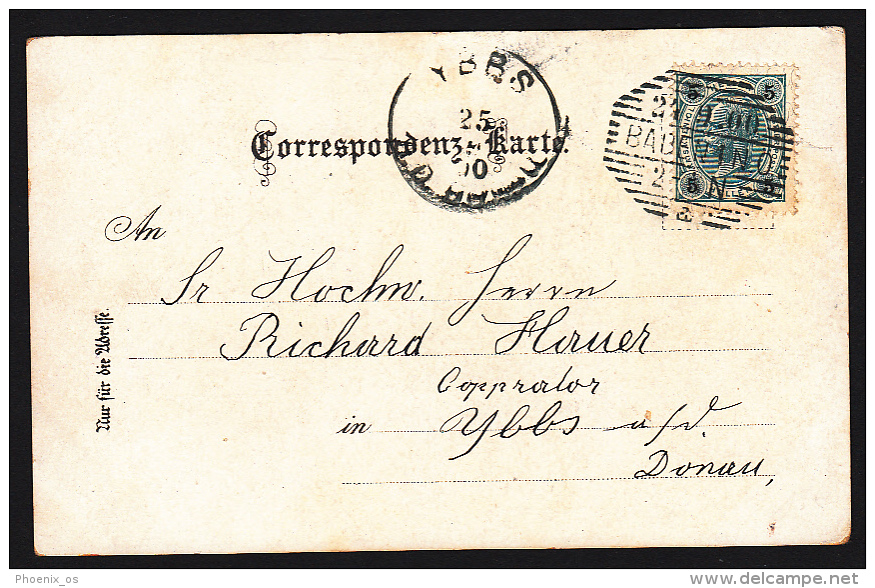 YBBS
25
00
Correspondenz-Karte.
5 5
BADEN
5 5
An
Sr Hochw. Herrn
Richard Hauer
Cooprator
in Ybbs a/d.
Donau,
Nur für die Adresse.
Phoenix_os
delcampe.net